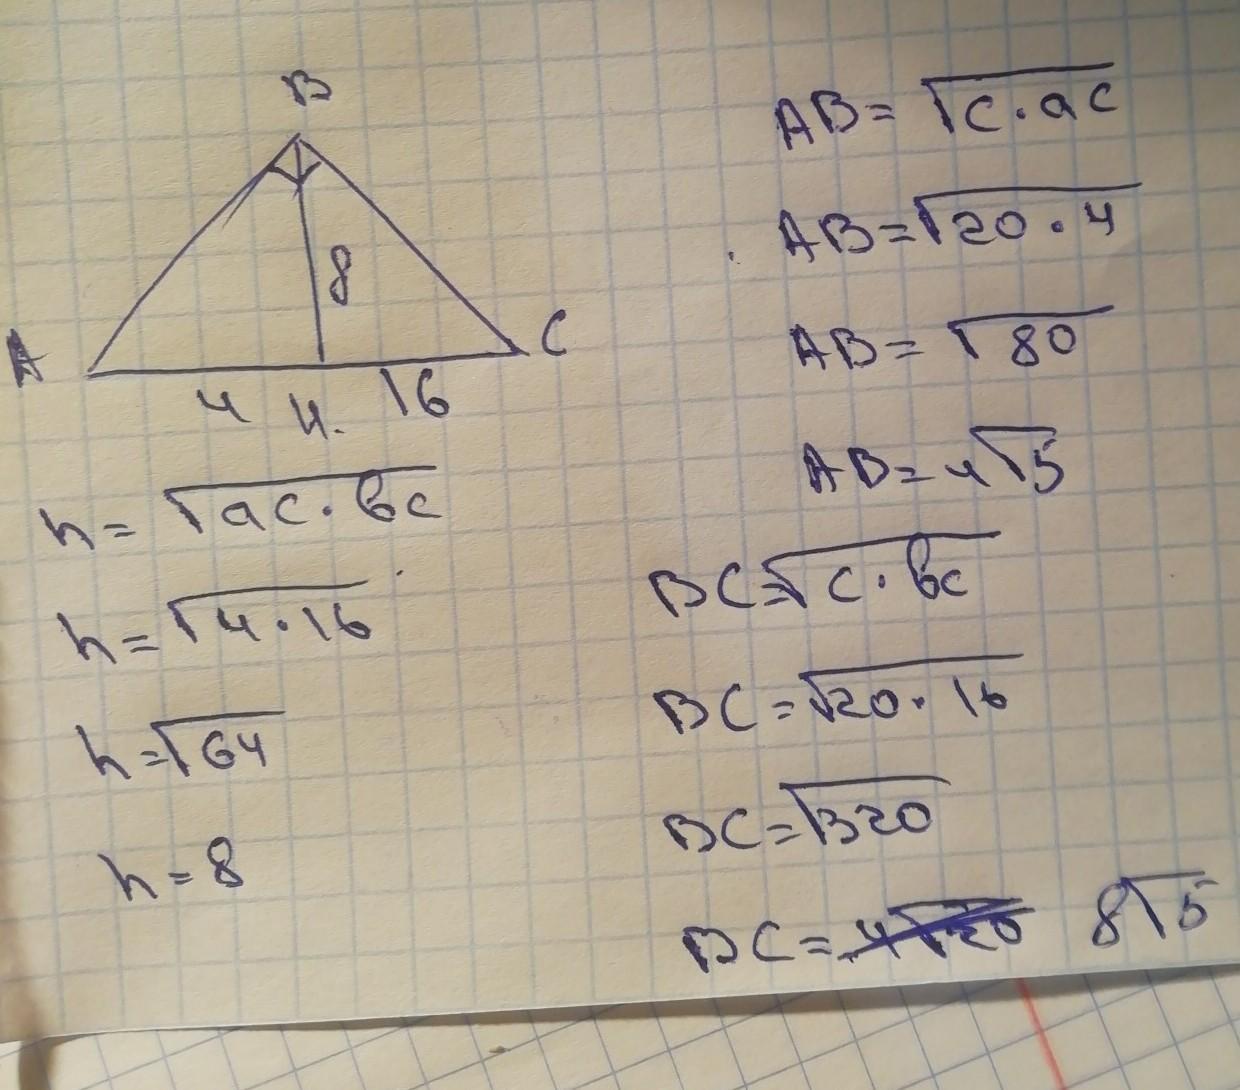 B
8
A
C
4 H. 16
h = √ac · bc
h = √4 · 16
h = √64
h = 8
AB = √c · ac
AB = √20 · 4
AB = √80
AB = 4√5
BC = √c · bc
BC = √20 · 16
BC = √320
BC = 4√20 8√5